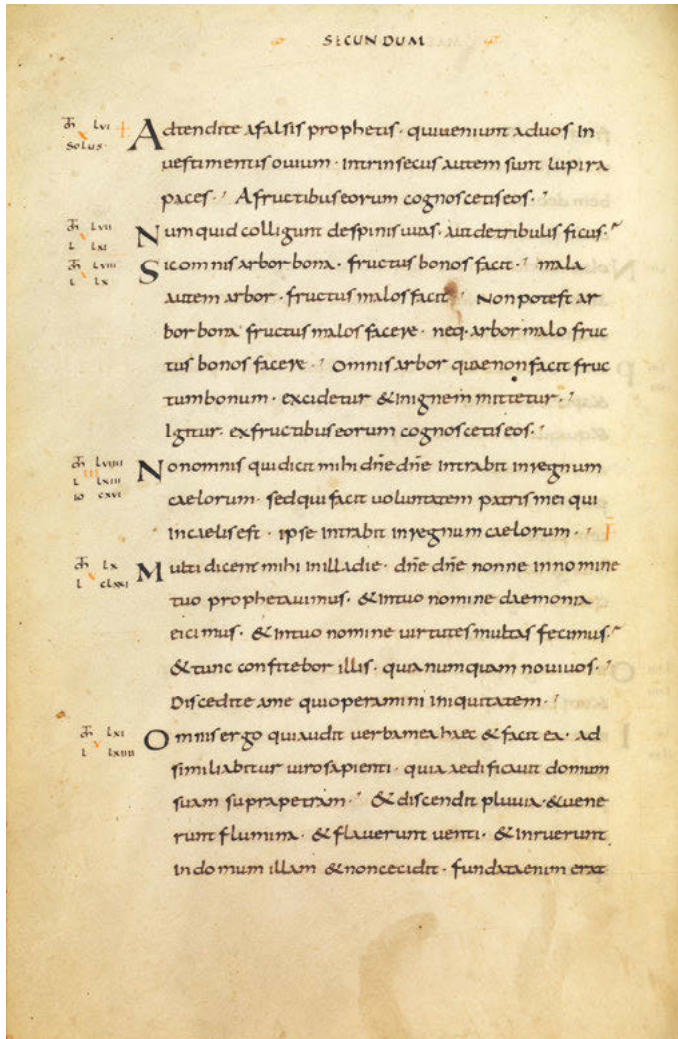 SECUNDUM
Adtendite afalsis prophetis · quiueniunt aduos In
uestimentis ouium · Intrinsecus autem sunt lupira
paces · Afructibus eorum cognoscetis eos ·
Numquid colligunt despinis uuas · autdetribulis ficus ·
Sicomnis arbor bona · fructus bonos facit · mala
autem arbor · fructus malos facit Nonpotest ar
bor bona fructus malos facere · neq· arbor malo fruc
tus bonos facere · Omnis arbor quaenonfacit fruc
tumbonum · excidetur &inignem mittetur ·
Igitur · exfructibus eorum cognoscetis eos ·
Nonomnis quidicit mihi dn̄e dn̄e Intrabit inregnum
caelorum · sedquifacit uoluntatem patrismei qui
Incaelisest · ipse Intrabit inregnum caelorum ·
Multi dicent mihi inilladie · dn̄e dn̄e nonne innomine
tuo prophetauimus · &Intuo nomine daemonia
eicimus · &Intuo nomine uirtutes multas fecimus ·
&tunc confitebor illis · quianumquam nouiuos ·
Discedite ame quioperamini Iniquitatem ·
Omnisergo quiaudit uerbamea haec &facit ea · ad
similiabitur uirosapienti · quia aedificauit domum
suam suprapetram · &discendit pluuia · &uene
runt flumina · &flauerunt uenti · &Inruerunt
Indomum illam &noncecidit · fundataenim erat
LVI
solus
LVII
L LXI
LVIII
L LX
LVIIII
L LXIII
IO CXVI
LX
L CLXXI
LXI
L LXIIII